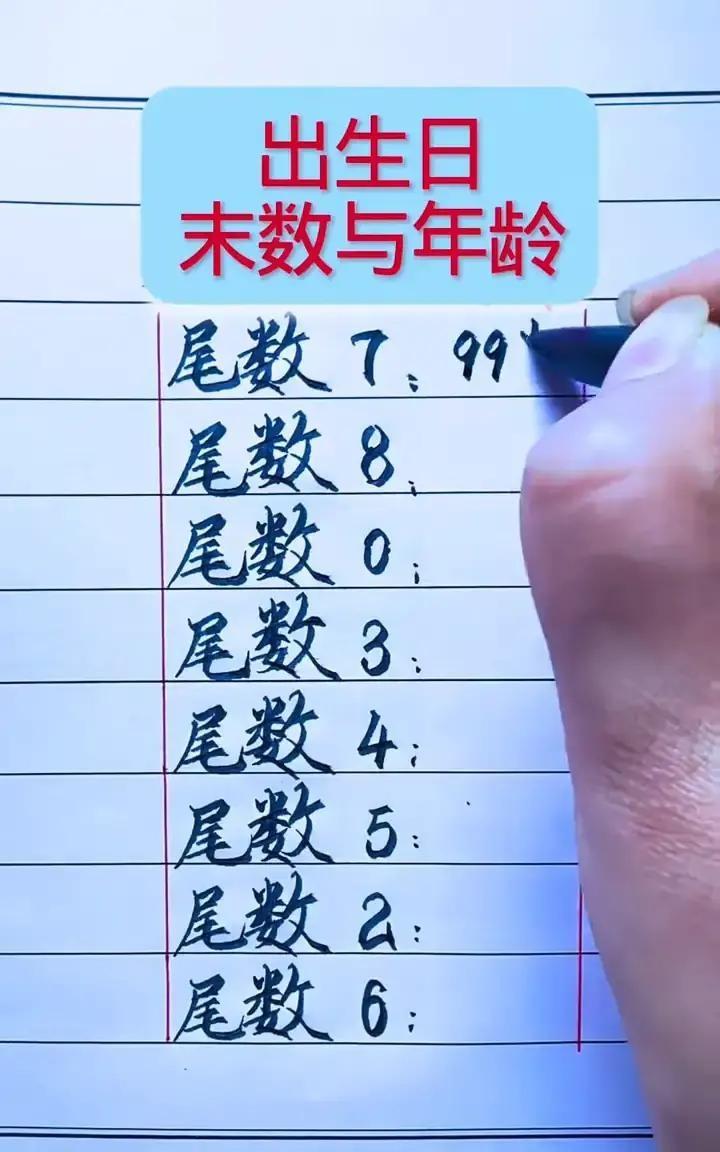 出生日
末数与年龄
尾数 7: 99
尾数 8:
尾数 0:
尾数 3:
尾数 4:
尾数 5:
尾数 2:
尾数 6: